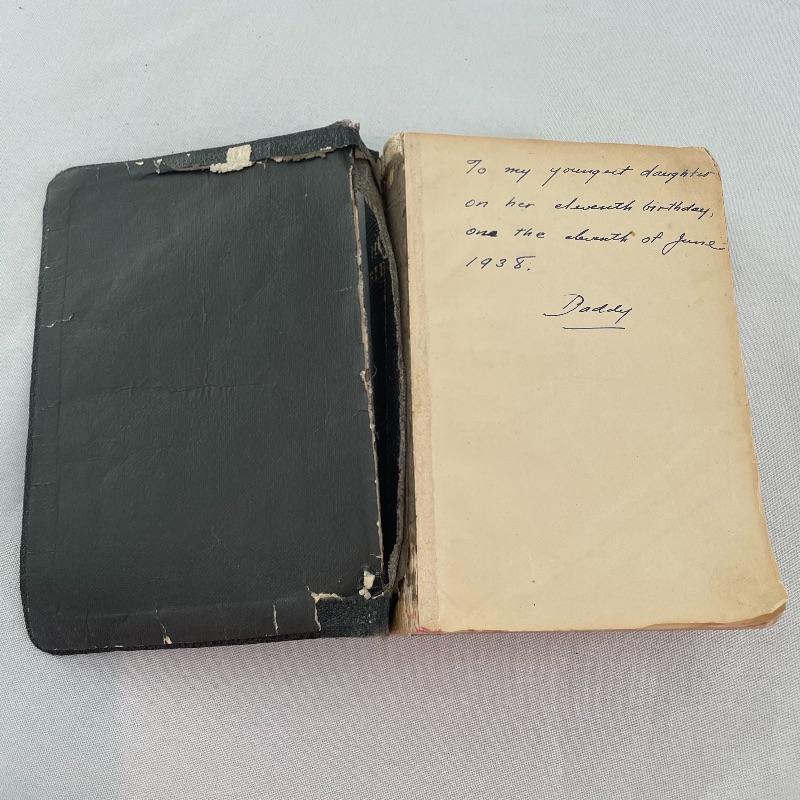 To my youngest daughter
on her eleventh birthday,
one the eleventh of June
1938.
Daddy